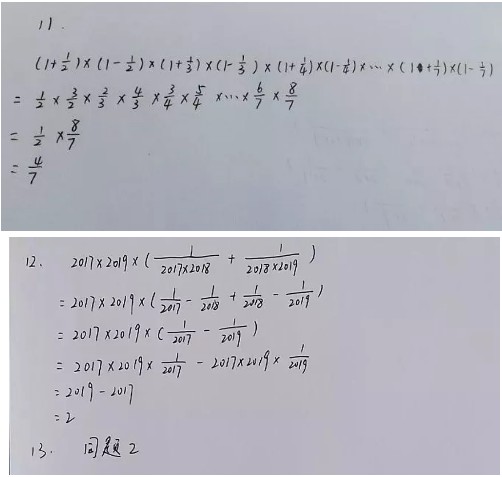 11.
(1+1/2)×(1-1/2)×(1+1/3)×(1-1/3)×(1+1/4)×(1-1/4)×…×(1+1/7)×(1-1/7)
= 1/2 × 3/2 × 2/3 × 4/3 × 3/4 × 5/4 ×…× 6/7 × 8/7
= 1/2 × 8/7
= 4/7
12. 2017×2019×(1/2017×2018 + 1/2018×2019)
= 2017×2019×(1/2017 - 1/2018 + 1/2018 - 1/2019)
= 2017×2019×(1/2017 - 1/2019)
= 2017×2019×1/2017 - 2017×2019×1/2019
= 2019-2017
= 2
13. 同题2